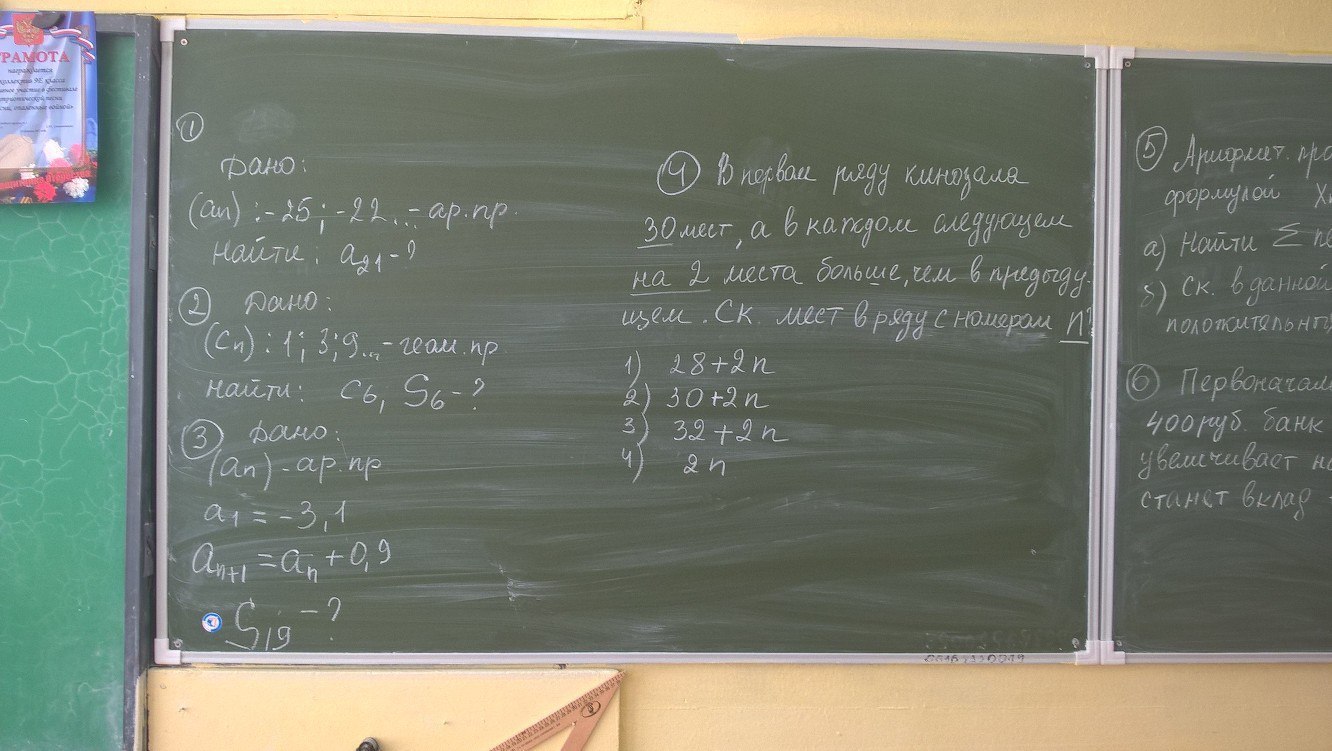 ГРАМОТА
награждается
коллектив 9Е класса
①
Дано:
(an) : -25; -22... - ар.пр.
Найти: a21 - ?
② Дано:
(Cn) : 1; 3; 9... - геом.пр.
Найти: C6, S6 - ?
③ Дано:
(an) - ар.пр
a1 = -3,1
an+1 = an + 0,9
S19 - ?
④ В первом ряду кинозала
30 мест, а в каждом следующем
на 2 места больше, чем в предыду-
щем. Ск. мест в ряду с номером n?
1) 28+2n
2) 30+2n
3) 32+2n
4) 2n
⑤ Арифмет. про
формулой
а) Найти Σ пе
б) Ск. в данной
положительных
⑥ Первоначаль
400 руб. банк
увеличивает на
станет вклад